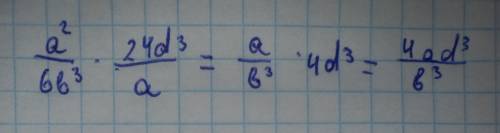 a²/6b³ · 24d³/a = a/b³ · 4d³ = 4ad³/b³